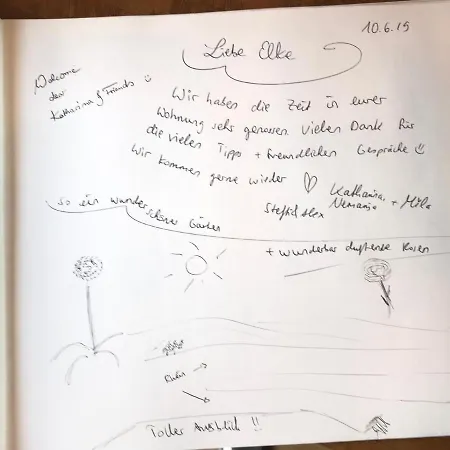 10.6.19
Liebe Elke
Welcome
dear
Katharina & Friends
Wir haben die Zeit in eurer
Wohnung sehr genossen. Vielen Dank für
die vielen Tipps + freundlichen Gespräche
Wir kommen gerne wieder
Katharina,
Nemanja + Mila
so ein wunder
schöner Garten
+ wunderbar duftende Rosen
Toller Ausblick !!